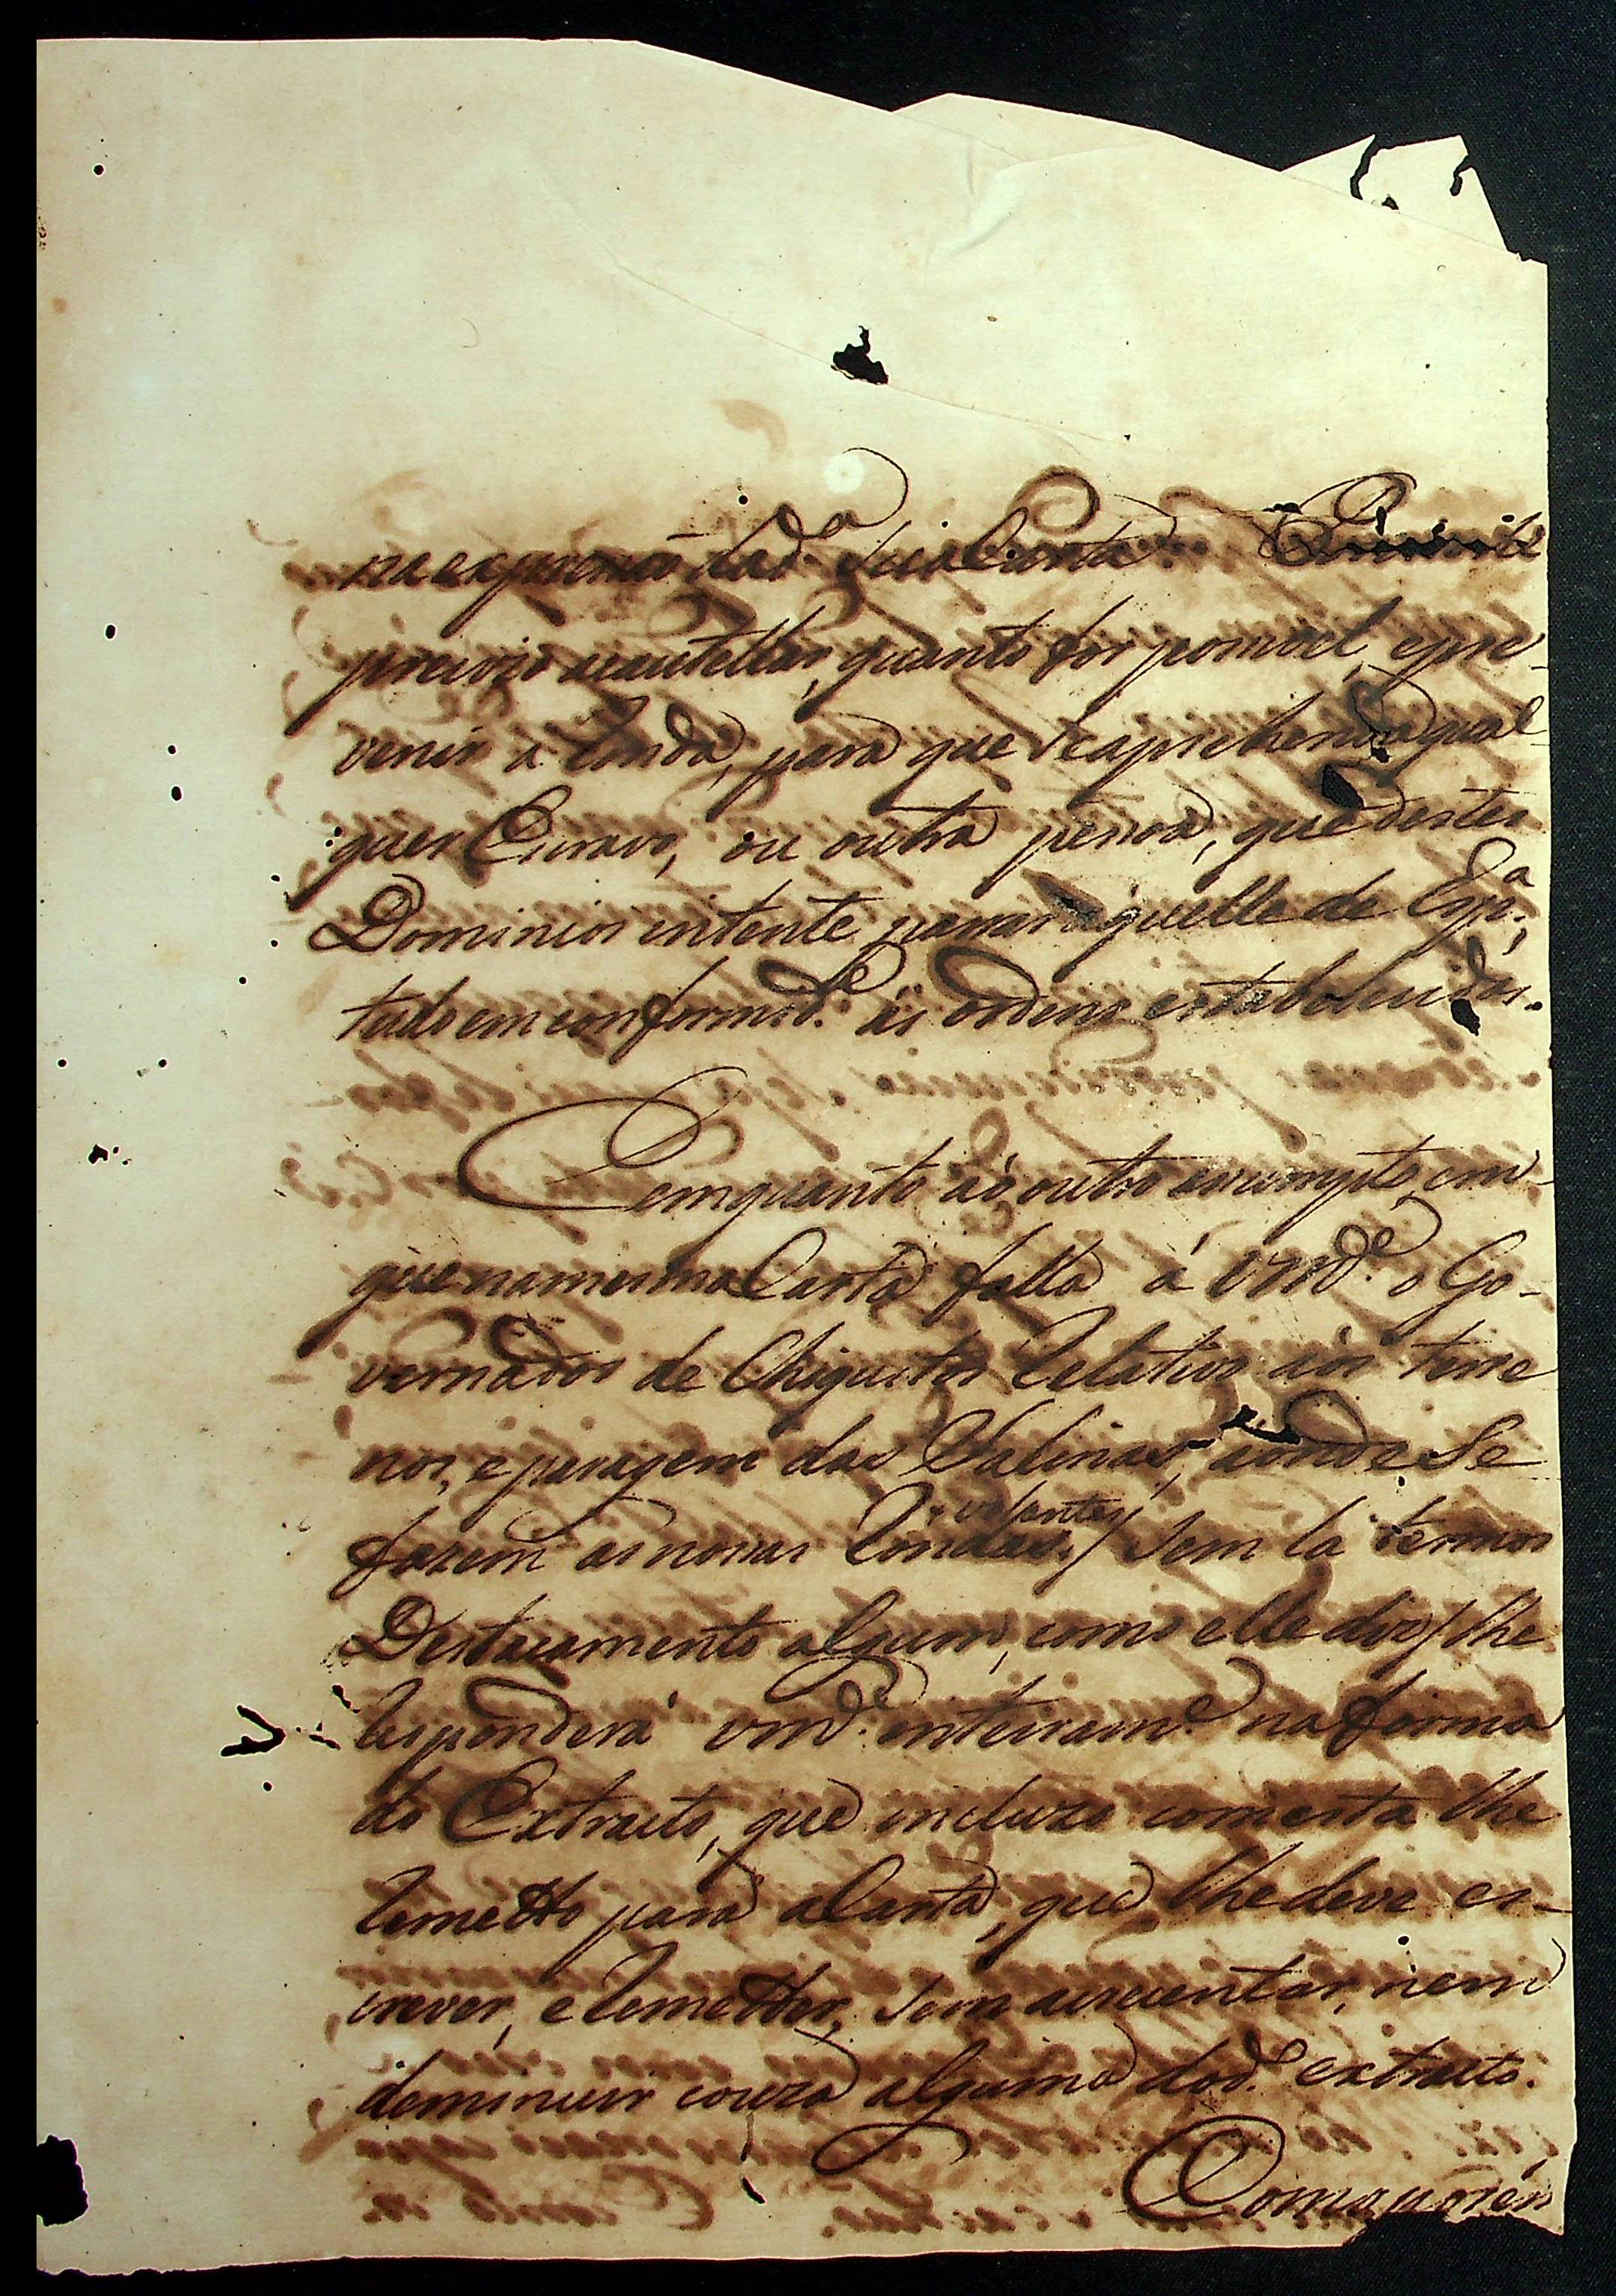 na expressaõ dad.ª Sua Carta. 
preciozo acautellar, quanto for possivel, e pre-
venir a Ronda, para que se aprehenda qual-
quer Escravo, ou outra pessoa, que destes
Dominios intente passar áquelle de Esp.ª,
tudo em conformid.e ás ordens estabelecidas.
Emquanto aó outro assumpto, em
que na mesma Carta falla á vm.ce o Go-
vernador de Chiquitos Relativo aós terre
nos, e paragem das Salinas, aonde Se
fazem as nossas Rondas volantes / sem lá termos
Destacamento algum, como elle diz / lhe
Responderá vm.ce inteiram.e na forma
do Extracto, que incluzo com esta lhe
Remetto para a Carta, que lhe deve es-
crever, e Remetter, sem acrescentar, nem
deminuir couza alguma dod.º extracto.
Como porèm